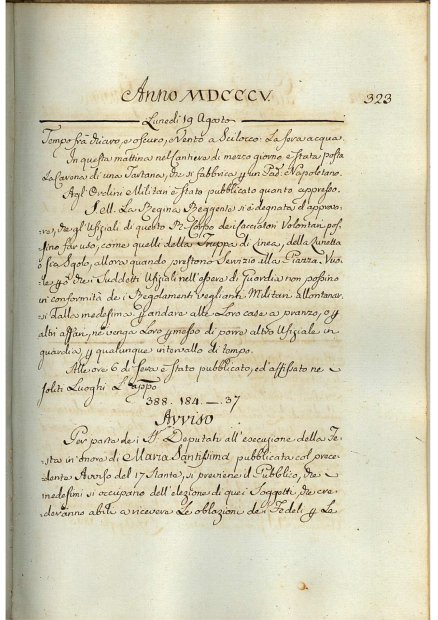 Anno MDCCCV.
323
Lunedì 19 Agosto
Tempo fra chiaro, e oscuro, e Vento a Scilocco. La sera acqua.
In questa mattina nel Cantiere di mezzo giorno è stata posta
La Cavena di una Tartana, che si fabbrica p un Pad: Napoletano.
Agl' Ordini Militari è stato pubblicato quanto appresso.
S. M. La Regina Reggente si è degnata d'approva-
re, che gl' Ufiziali di questo R. Corpo dei Cacciatori Volontari pos-
sino far uso, come quelli della Truppa di Linea, della Lunetta
o sia Sgolo, allora quando prestono servizio alla Piazza. Vuo-
le poi che i suddetti Ufiziali nell' essere di Guardia non possino
in conformità dei Regolamenti veglianti Militari allontanar-
si dalla medesima p andare alle Loro case a pranzo, o p
altri affari, nè venga Loro p messo di porre altro Ufiziale in
guardia, p qualunque intervallo di tempo.
Alle ore 6 di sera è stato pubblicato, ed affissato ne
soliti Luoghi L'appo
388. 184. — 37
Avviso
Per parte dei SS Deputati all' esecuzione della Fe-
sta in onore di Maria Santissima pubblicata col prece-
dente Avviso del 17 stante, si previene il Pubblico, che
medesimi si occupano dell' elezione di quei Soggetti, che cre-
deranno abili a ricevere Le oblazioni dei Fedeli p La